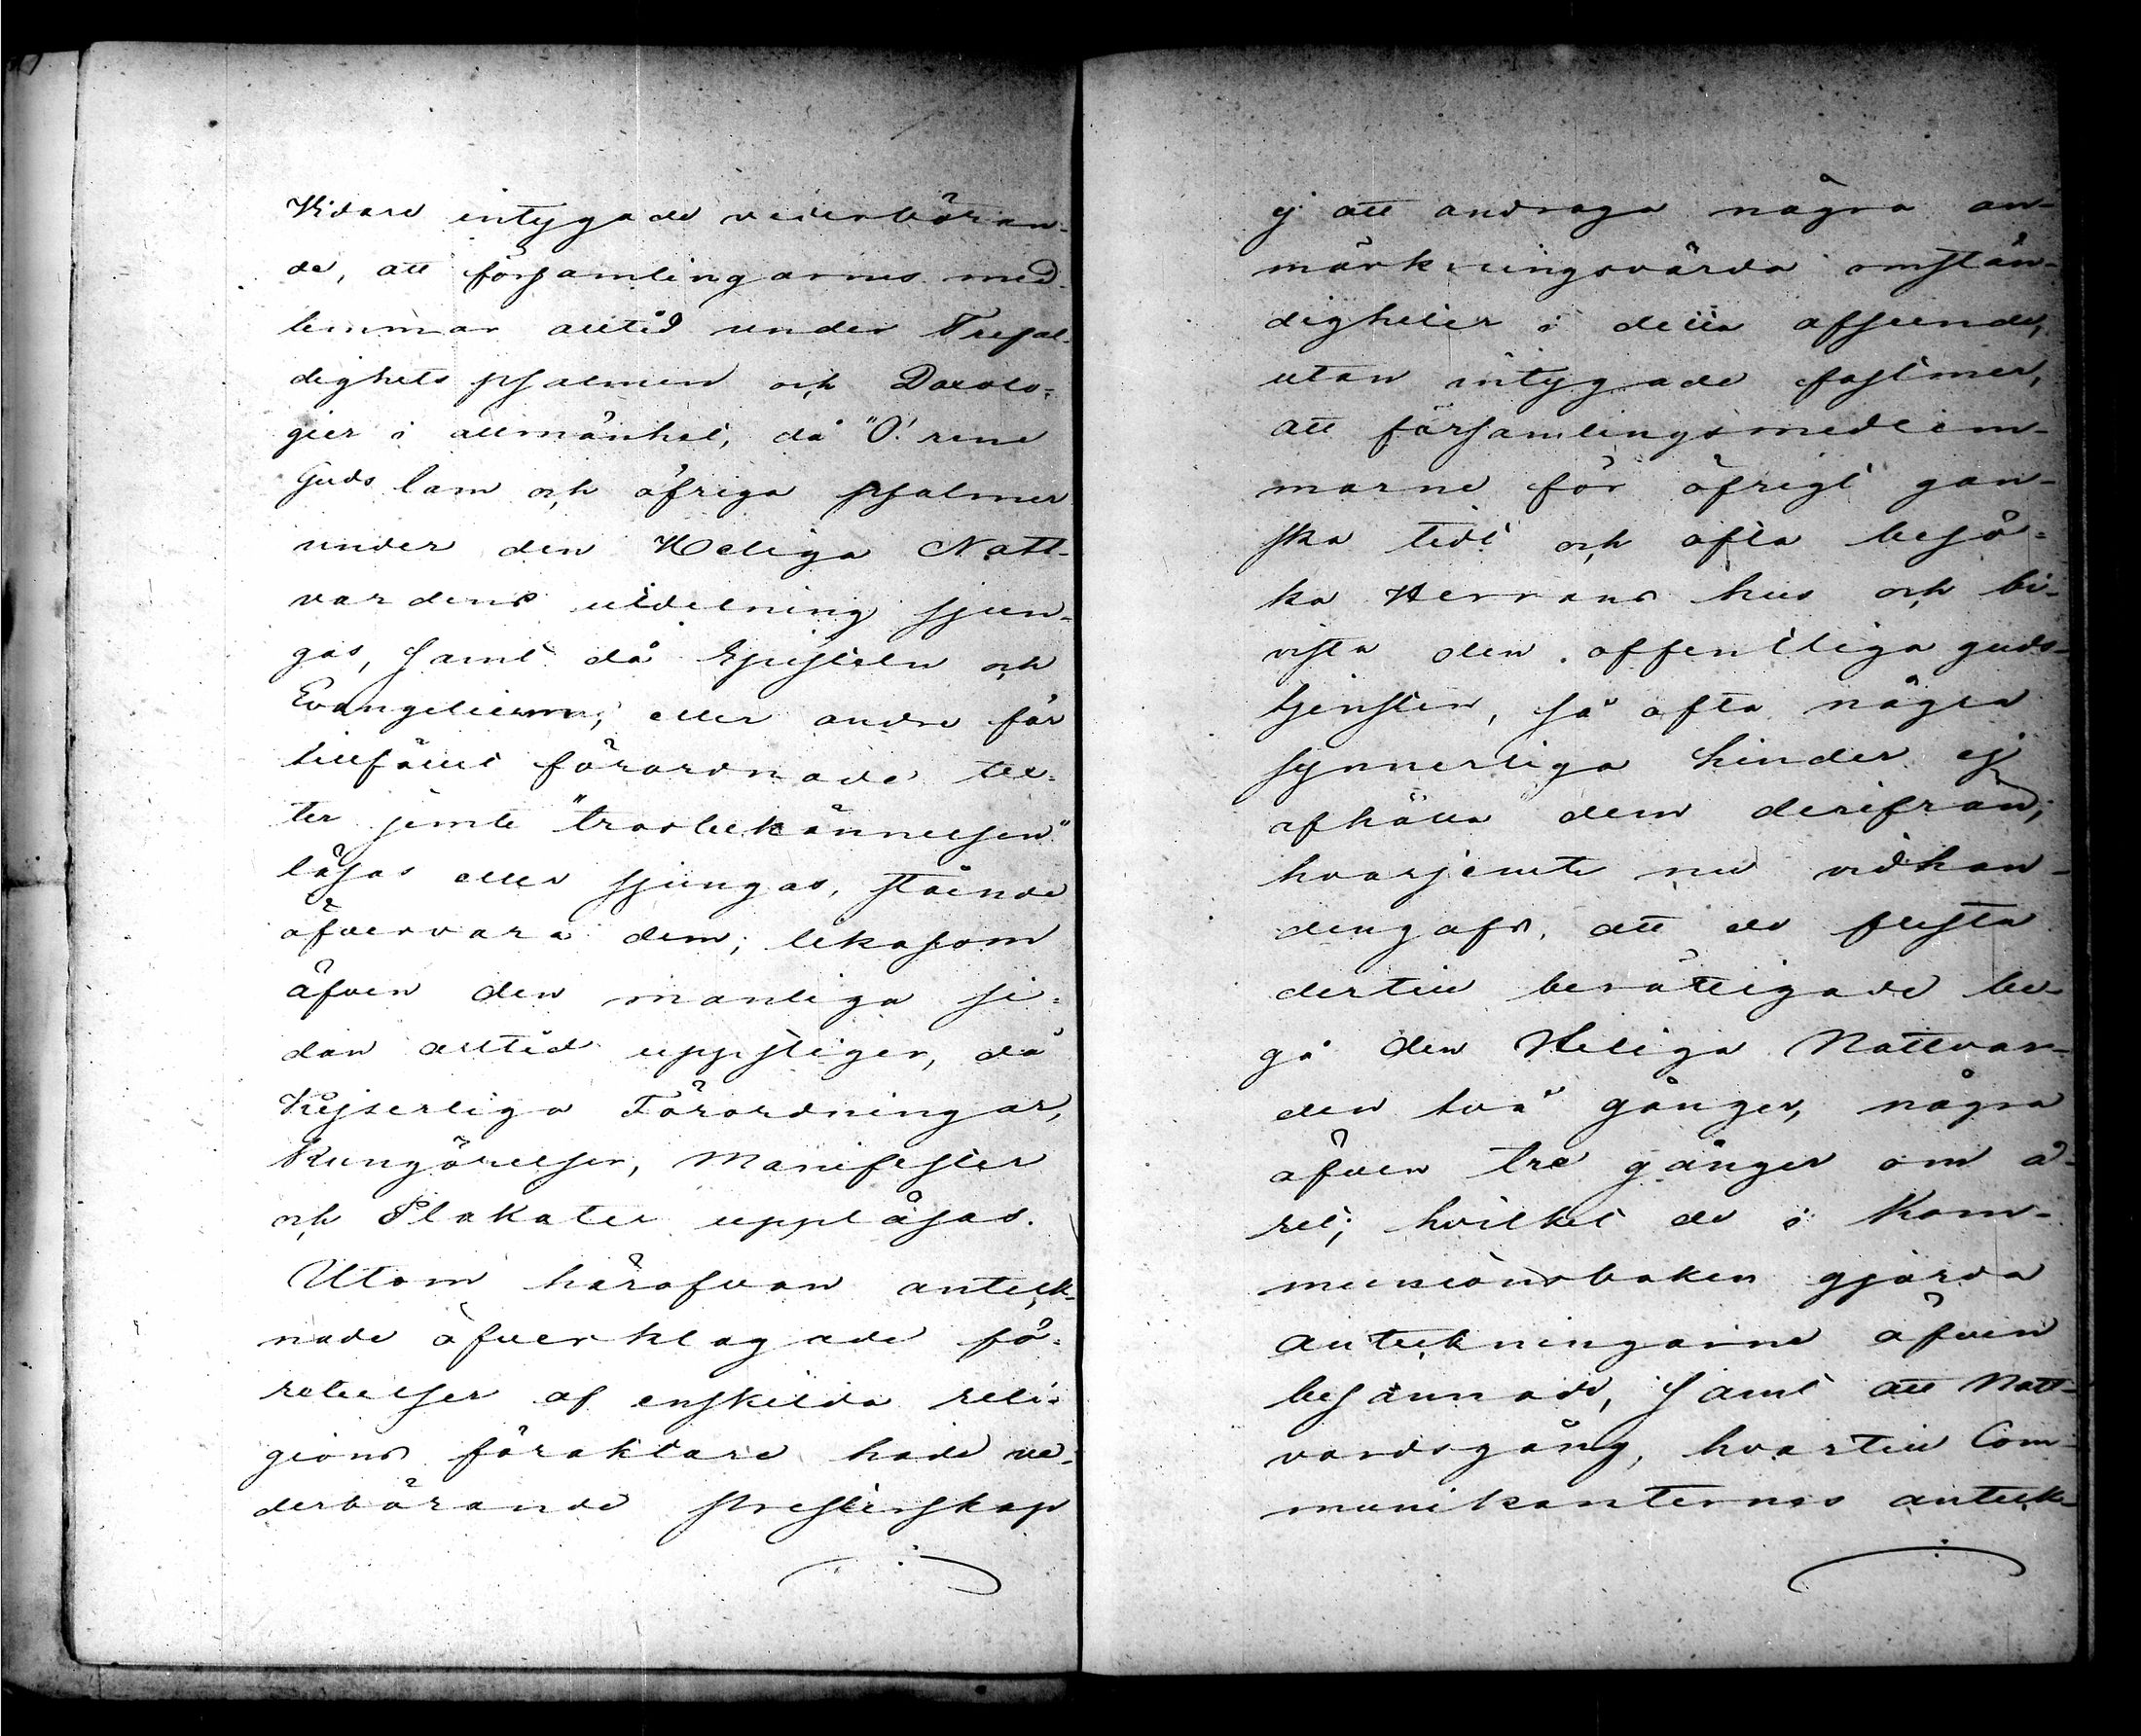 Vidare intygade vederböran-
de, att församlingarnes med-
lemmar alltid under Trefal-
dighets psalmen och Doxolo-
gier i allmänhet, då "O! rene
Guds lam och öfriga psalmer
under den Heliga Natt-
vardens utdelning sjun-
gas, samt då Episteln och
Evangelierna, eller andre för
tillfället förordnade tex-
ter jemte "trosbekännelsen"
läsas eller sjungas, stående
öfvervara dem; likasom
äfven den manliga si-
dan alltid uppstiger, då
Kejserliga Förordningar,
Kungörelser, Manifester
och Plakater uppläsas.
Utom härofvan anteck-
nade öfverklagade fö-
reteelser af enskilda reli-
gions föraktare hade ve-
derbörande presterskap
ej att andraga några an-
märkningsvärda omstän-
digheter i detta afseende,
utan intygade fastmer,
att församlingsmedlem-
marne för öfrigt gan-
ska tidt och ofta besö-
ka Herrans hus och bi-
vista den offentliga guds-
tjensten, så ofta några
synnerliga hinder ej
afhålla dem derifrån;
hvarjemte nu vidhan-
dengafs, att de flesta
dertill berättigade be-
gå den Heliga Nattvar-
den två gånger, några
äfven tre gånger om å-
ret; hvilket de i Kom-
munionsboken gjorda
anteckningarne äfven
besannade, samt att Natt-
vardsgång, hvartill Com-
munikanternes anteck-